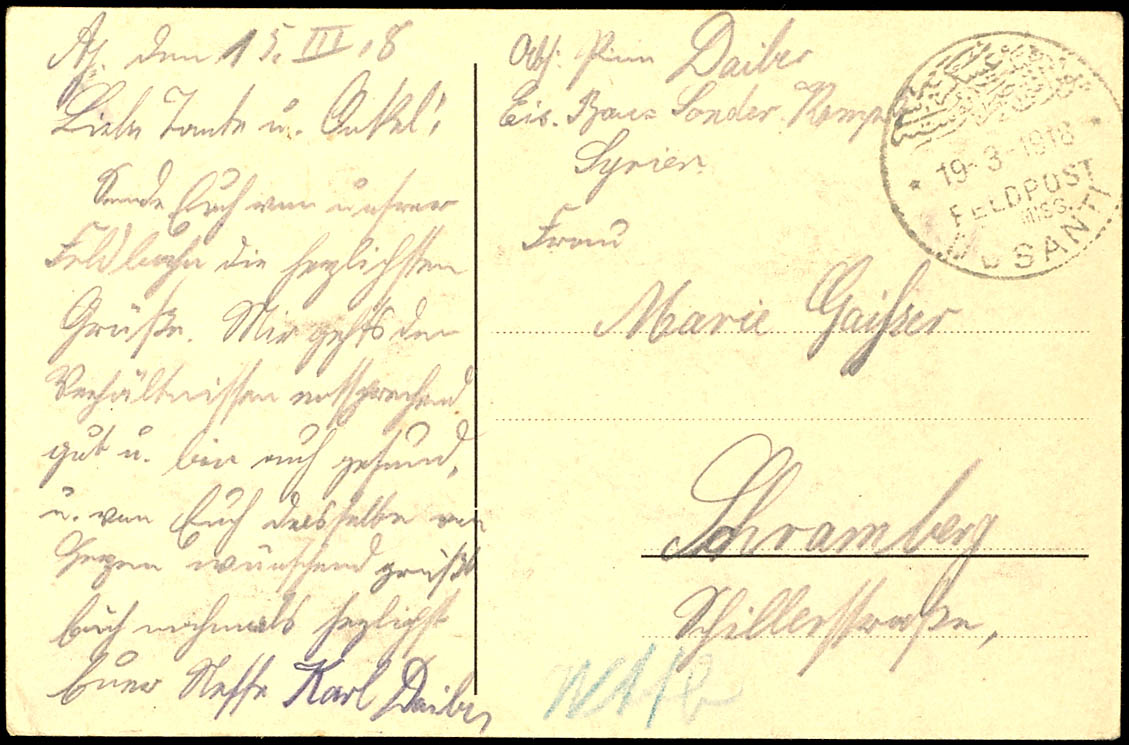 den 15. III. 18
Liebe Tante u. Onkel!
Sende Euch von unsrer
Feldbahn die herzlichsten
Grüße. Mir gehts den
Verhältnissen entsprechend
gut u. bin auch gesund,
u. von Euch dasselbe von
Herzen wünschend grüßt
Euch nochmals herzlichst
Euer Neffe Karl Daiber
Abs. Pion Daiber
Eis. Bau= Sonder. Komp
Syrien
Frau
Marie Gaißer
Schramberg
Schillerstraße,
19-3-1918
FELDPOST
MISS.
BOSANTI